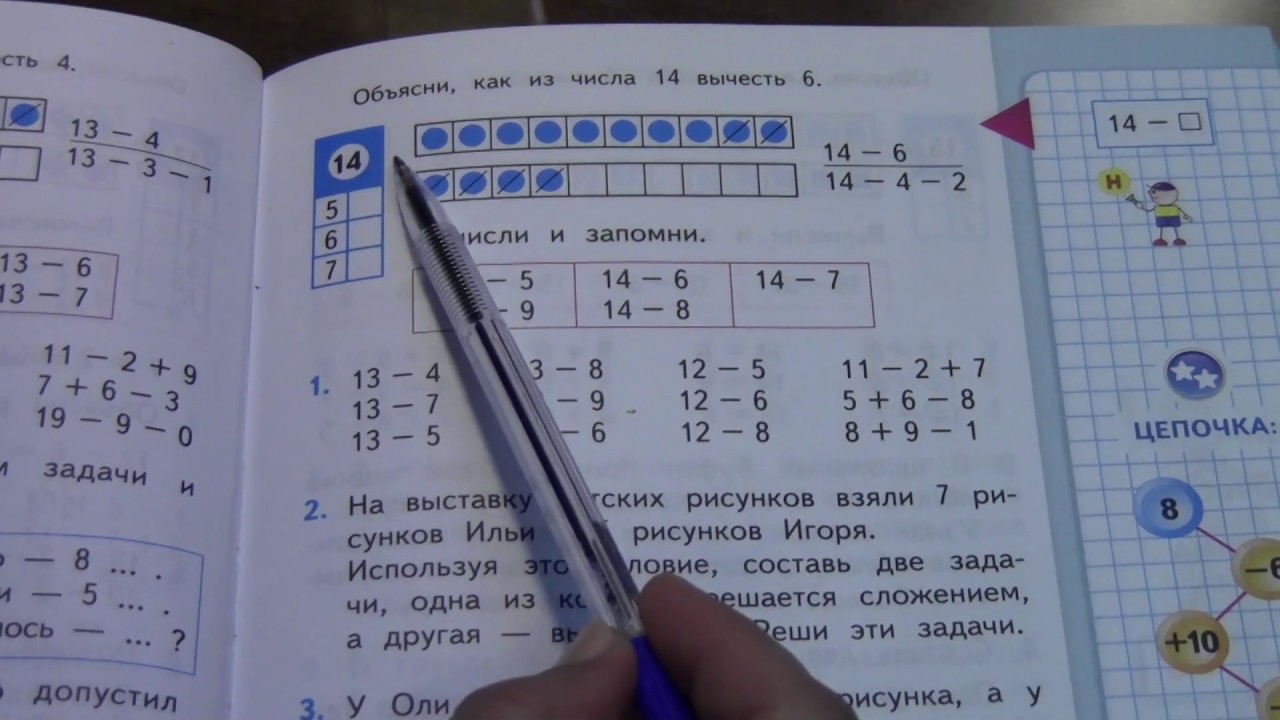 сть 4.
13 − 4
13 − 3 − 1
13 − 6
13 − 7
11 − 2 + 9
7 + 6 − 3
19 − 9 − 0
задачи и
— 8 ... .
— 5 ... .
лось — ... ?
допустил
Объясни, как из числа 14 вычесть 6.
14
5
6
7
14 − 6
14 − 4 − 2
числи и запомни.
− 5 14 − 6 14 − 7
− 9 14 − 8
1. 13 − 4 3 − 8 12 − 5 11 − 2 + 7
13 − 7 − 9 12 − 6 5 + 6 − 8
13 − 5 − 6 12 − 8 8 + 9 − 1
2. На выставку тских рисунков взяли 7 ри-
сунков Ильи рисунков Игоря.
Используя это ловие, составь две зада-
чи, одна из ко решается сложением,
а другая — вы Реши эти задачи.
3. У Оли рисунка, а у
14 − □
Н
ЦЕПОЧКА:
8
−6
+10